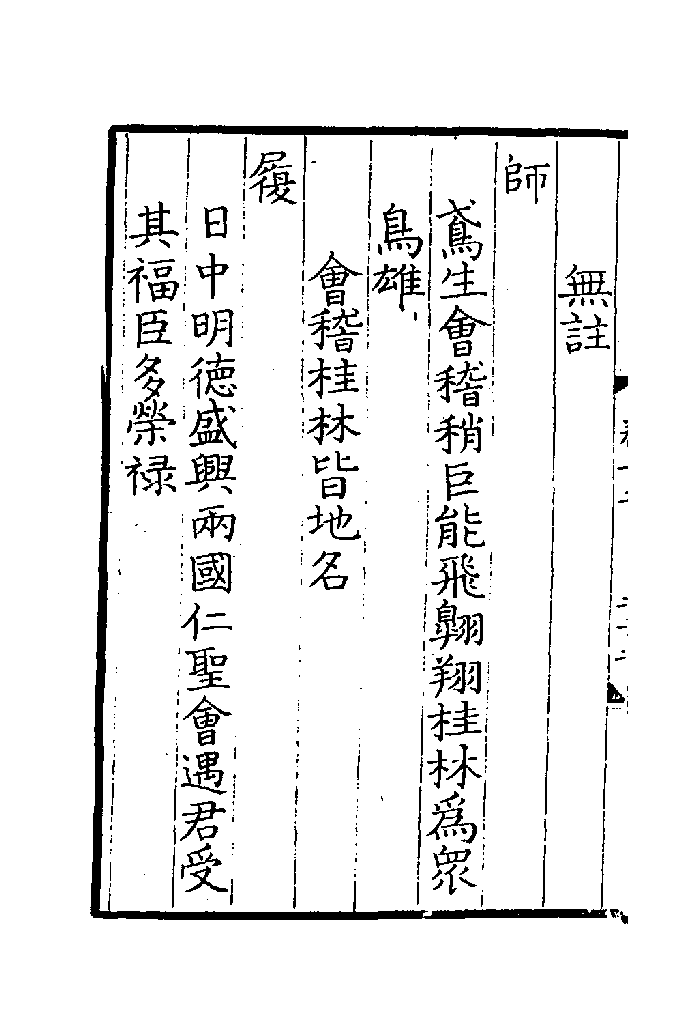 無註
師
鳶生會稽稍巨能飛翺翔桂林為眾
鳥雄
會稽桂林皆地名
履
日中明德盛興兩國仁聖會遇君受
其福臣多榮祿